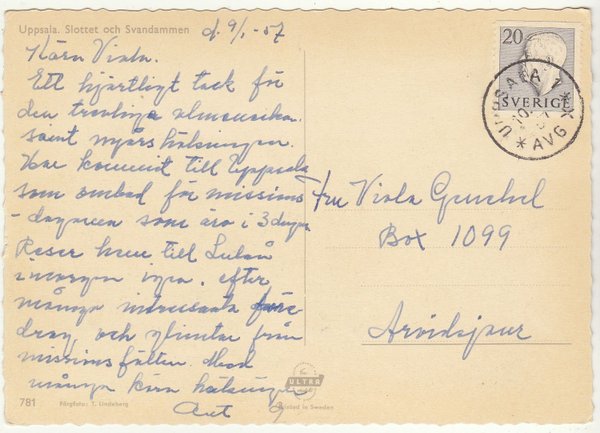 Uppsala. Slottet och Svandammen
d. 9/1-57
Kära Viola.
Ett hjärtligt tack för
den trevliga almanackan
samt nyårshälsningen.
Har kommit till Uppsala
som ombud för missions
-dagarna som äro i 3 dagar
Reser hem till Luleå
i morgon igen, efter
många intressanta före
drag, och glimtar från
missionsfälten. Med
många kära hälsningar
781
Färgfoto: T. Lindeberg
ULTRA
Printed in Sweden
20
SVERIGE
UPPSALA 1
AVG
Fru Viola
Box 1099
Arvidsjaur